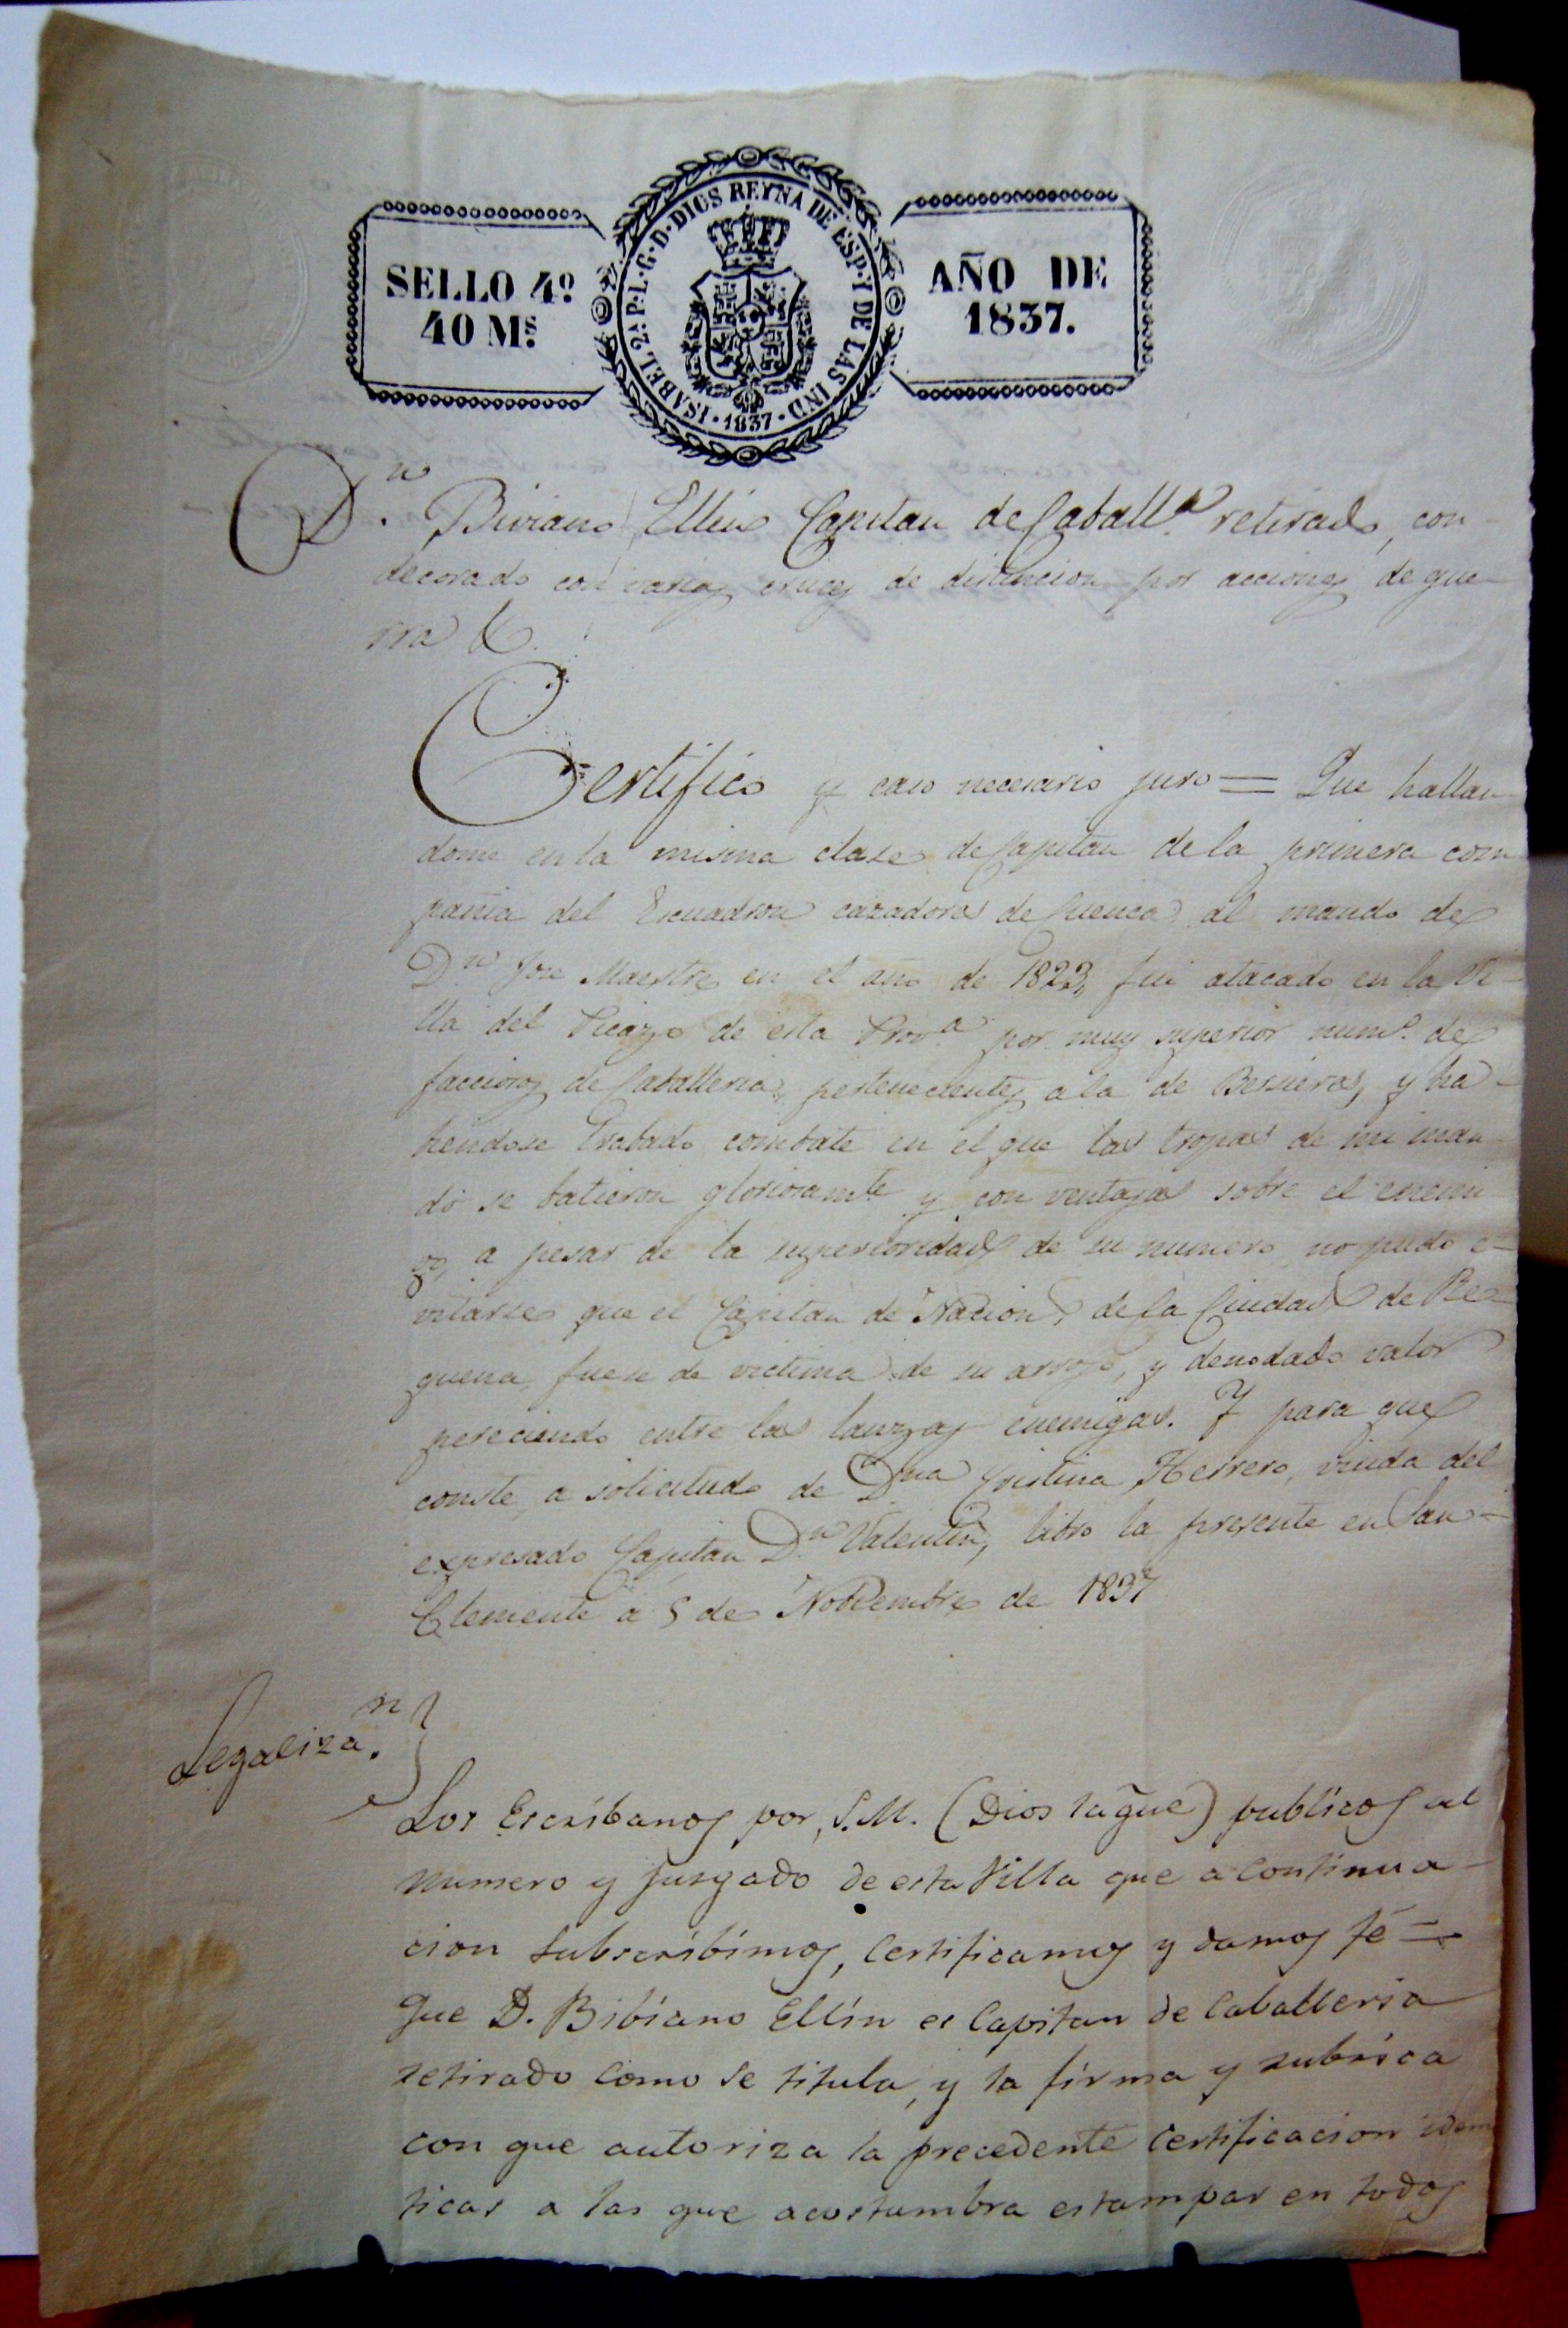 SELLO 4º
40 Mˢ.
ISABEL 2ª P. L. G. D. DIOS REYNA DE ESP. Y DE LAS IND.
1837
AÑO DE
1837.
Dⁿ. Biviano Ellin Capitan de Caballª. retirado, con-
decorado con varias cruces de distincion por acciones de gue-
rra &.
Certifico y caso necesario juro = Que hallan
dome en la misma clase de Capitan de la primera com
pañia del Escuadron cazadores de Cuenca al mando de
Dⁿ Jose Maestre en el año de 1823, fui atacado en la Vi-
lla del Picazo de esta Provª. por muy superior numº. de
facciosos de Caballeria, pertenecientes a la de Besieres, y ha-
biendose trabado combate en el que las tropas de mi man
do se batieron gloriosamᵗᵉ y con ventajas sobre el enemi
go, a pesar de la superioridad de su numero no pudo e-
vitarse que el Capitan de Nacion.ˢ de la Ciudad de Re-
quena, fuese victima de su arrojo, y denodado valor
pereciendo entre las lanzas enemigas. Y para que
conste, a solicitud de Dⁿᵃ Cristina Herrero, viuda del
expresado Capitan Dⁿ Valentin, libro la presente en San-
Clemente a 5 de Noviembre de 1837
Legalizaⁿ.
Los Escribanos por, S.M. (Dios la gue) publicos al
numero y Juzgado de esta Villa que a continua-
cion subscribimos, Certificamos y damos fé =
Que D. Bibiano Ellin es Capitan de Caballeria
retirado como se titula, y la firma y rubrica
con que autoriza la precedente Certificacion iden
ticas a las que acostumbra estampar en todos